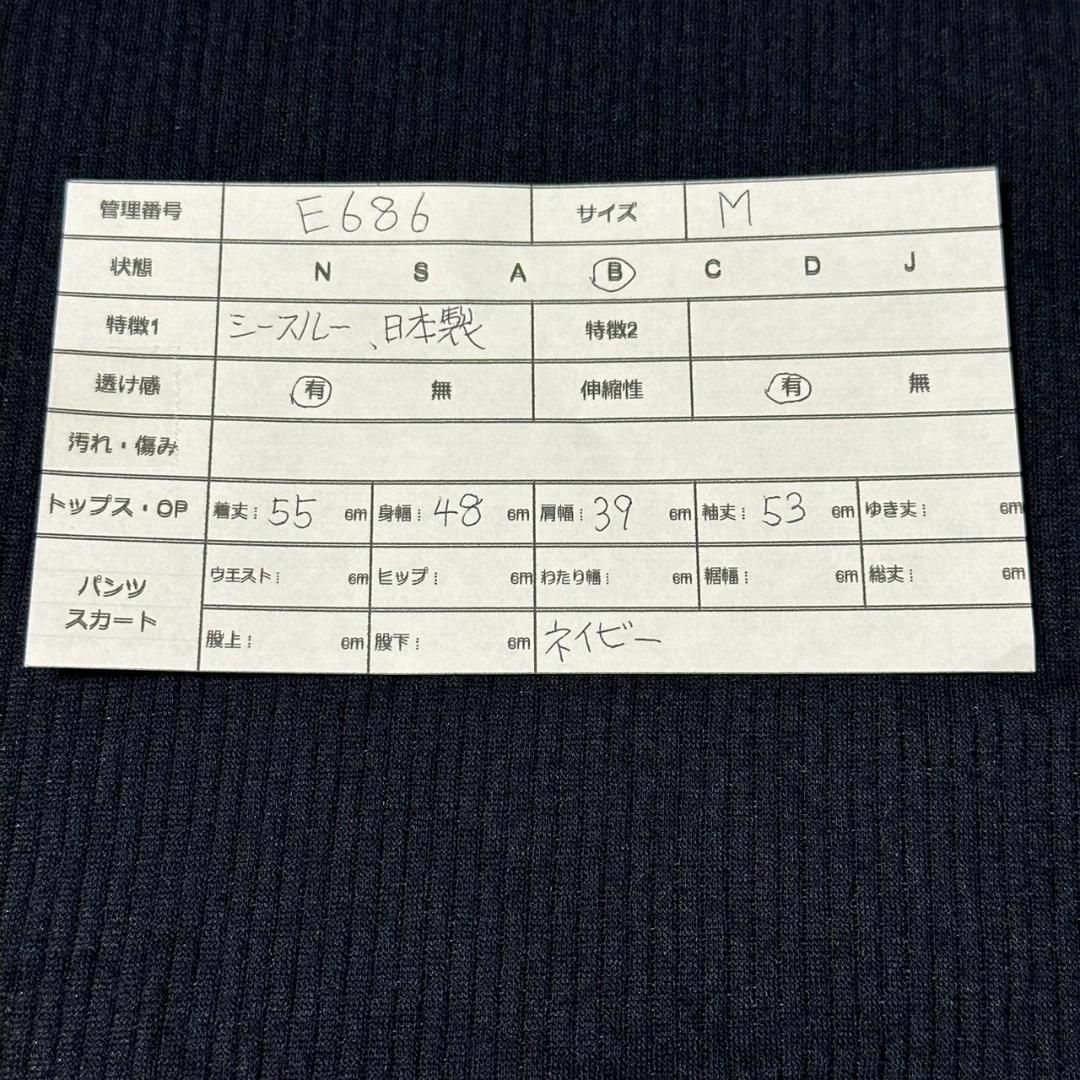 管理番号 E686 サイズ M
状態 N S A B C D J
特徴1 シースルー、日本製 特徴2
透け感 有 無 伸縮性 有 無
汚れ・傷み
トップス・OP 着丈: 55 cm 身幅: 48 cm 肩幅: 39 cm 袖丈: 53 cm ゆき丈: cm
パンツ スカート ウエスト: cm ヒップ: cm わたり幅: cm 裾幅: cm 総丈: cm
股上: cm 股下: cm ネイビー